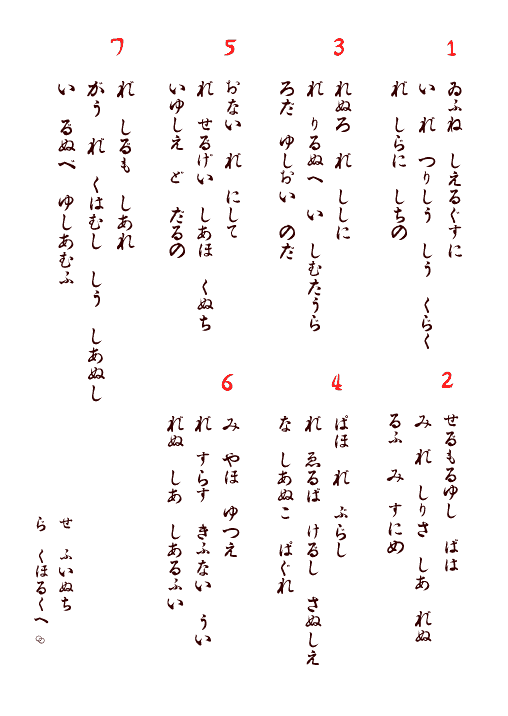 1
ゐふね しえるぐすに
い れ゙ つりしう しう くらく
れ゙ しらに しちの
2
せるもるゆし ばは
み れ゙ しりさ しあ れ゙ぬ
るふ み すにめ
3
れぬろ れ゙ ししに
れ゙ りるぬへ い しむたうら
ろだ ゆしおい のだ
4
ぱほ れ゙ ぶらし
れ゙ ゑるば けるし さぬしえ
な しあぬこ ぱぐれ
5
おない れ゙ にして
れ゙ せるげい しあほ くぬち
いゆしえ ど だるの
6
み やほ ゆつえ
れ゙ すらす きふない うい
れ゙ぬ しあ しあるふい
7
れ゙ しるも しあれ
がう れ゙ くはむし しう しあぬし
い るぬべ ゆしあむふ
せ ふいぬち
ら くほるくへ